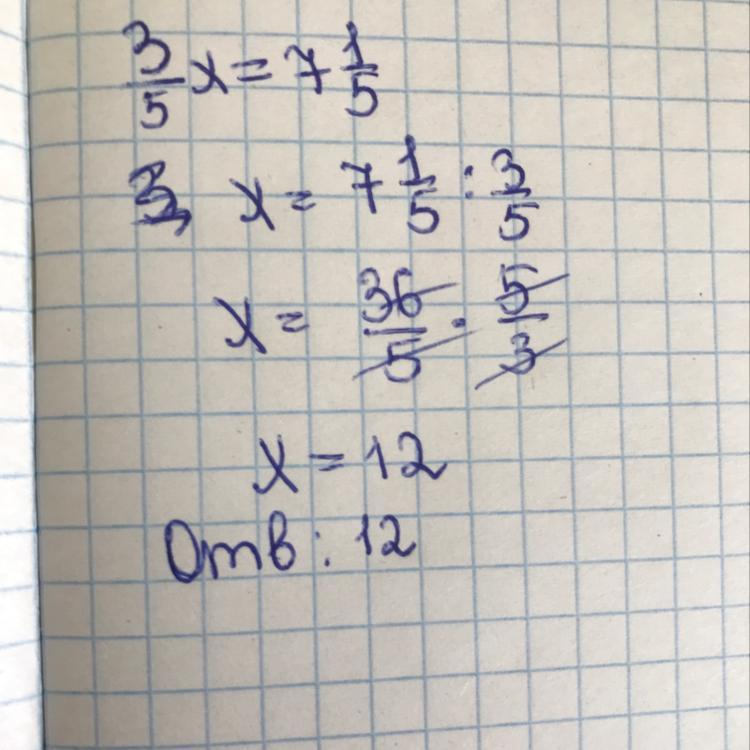 3/5 x = 7 1/5
x = 7 1/5 : 3/5
x = 36/5 · 5/3
x = 12
Отв: 12